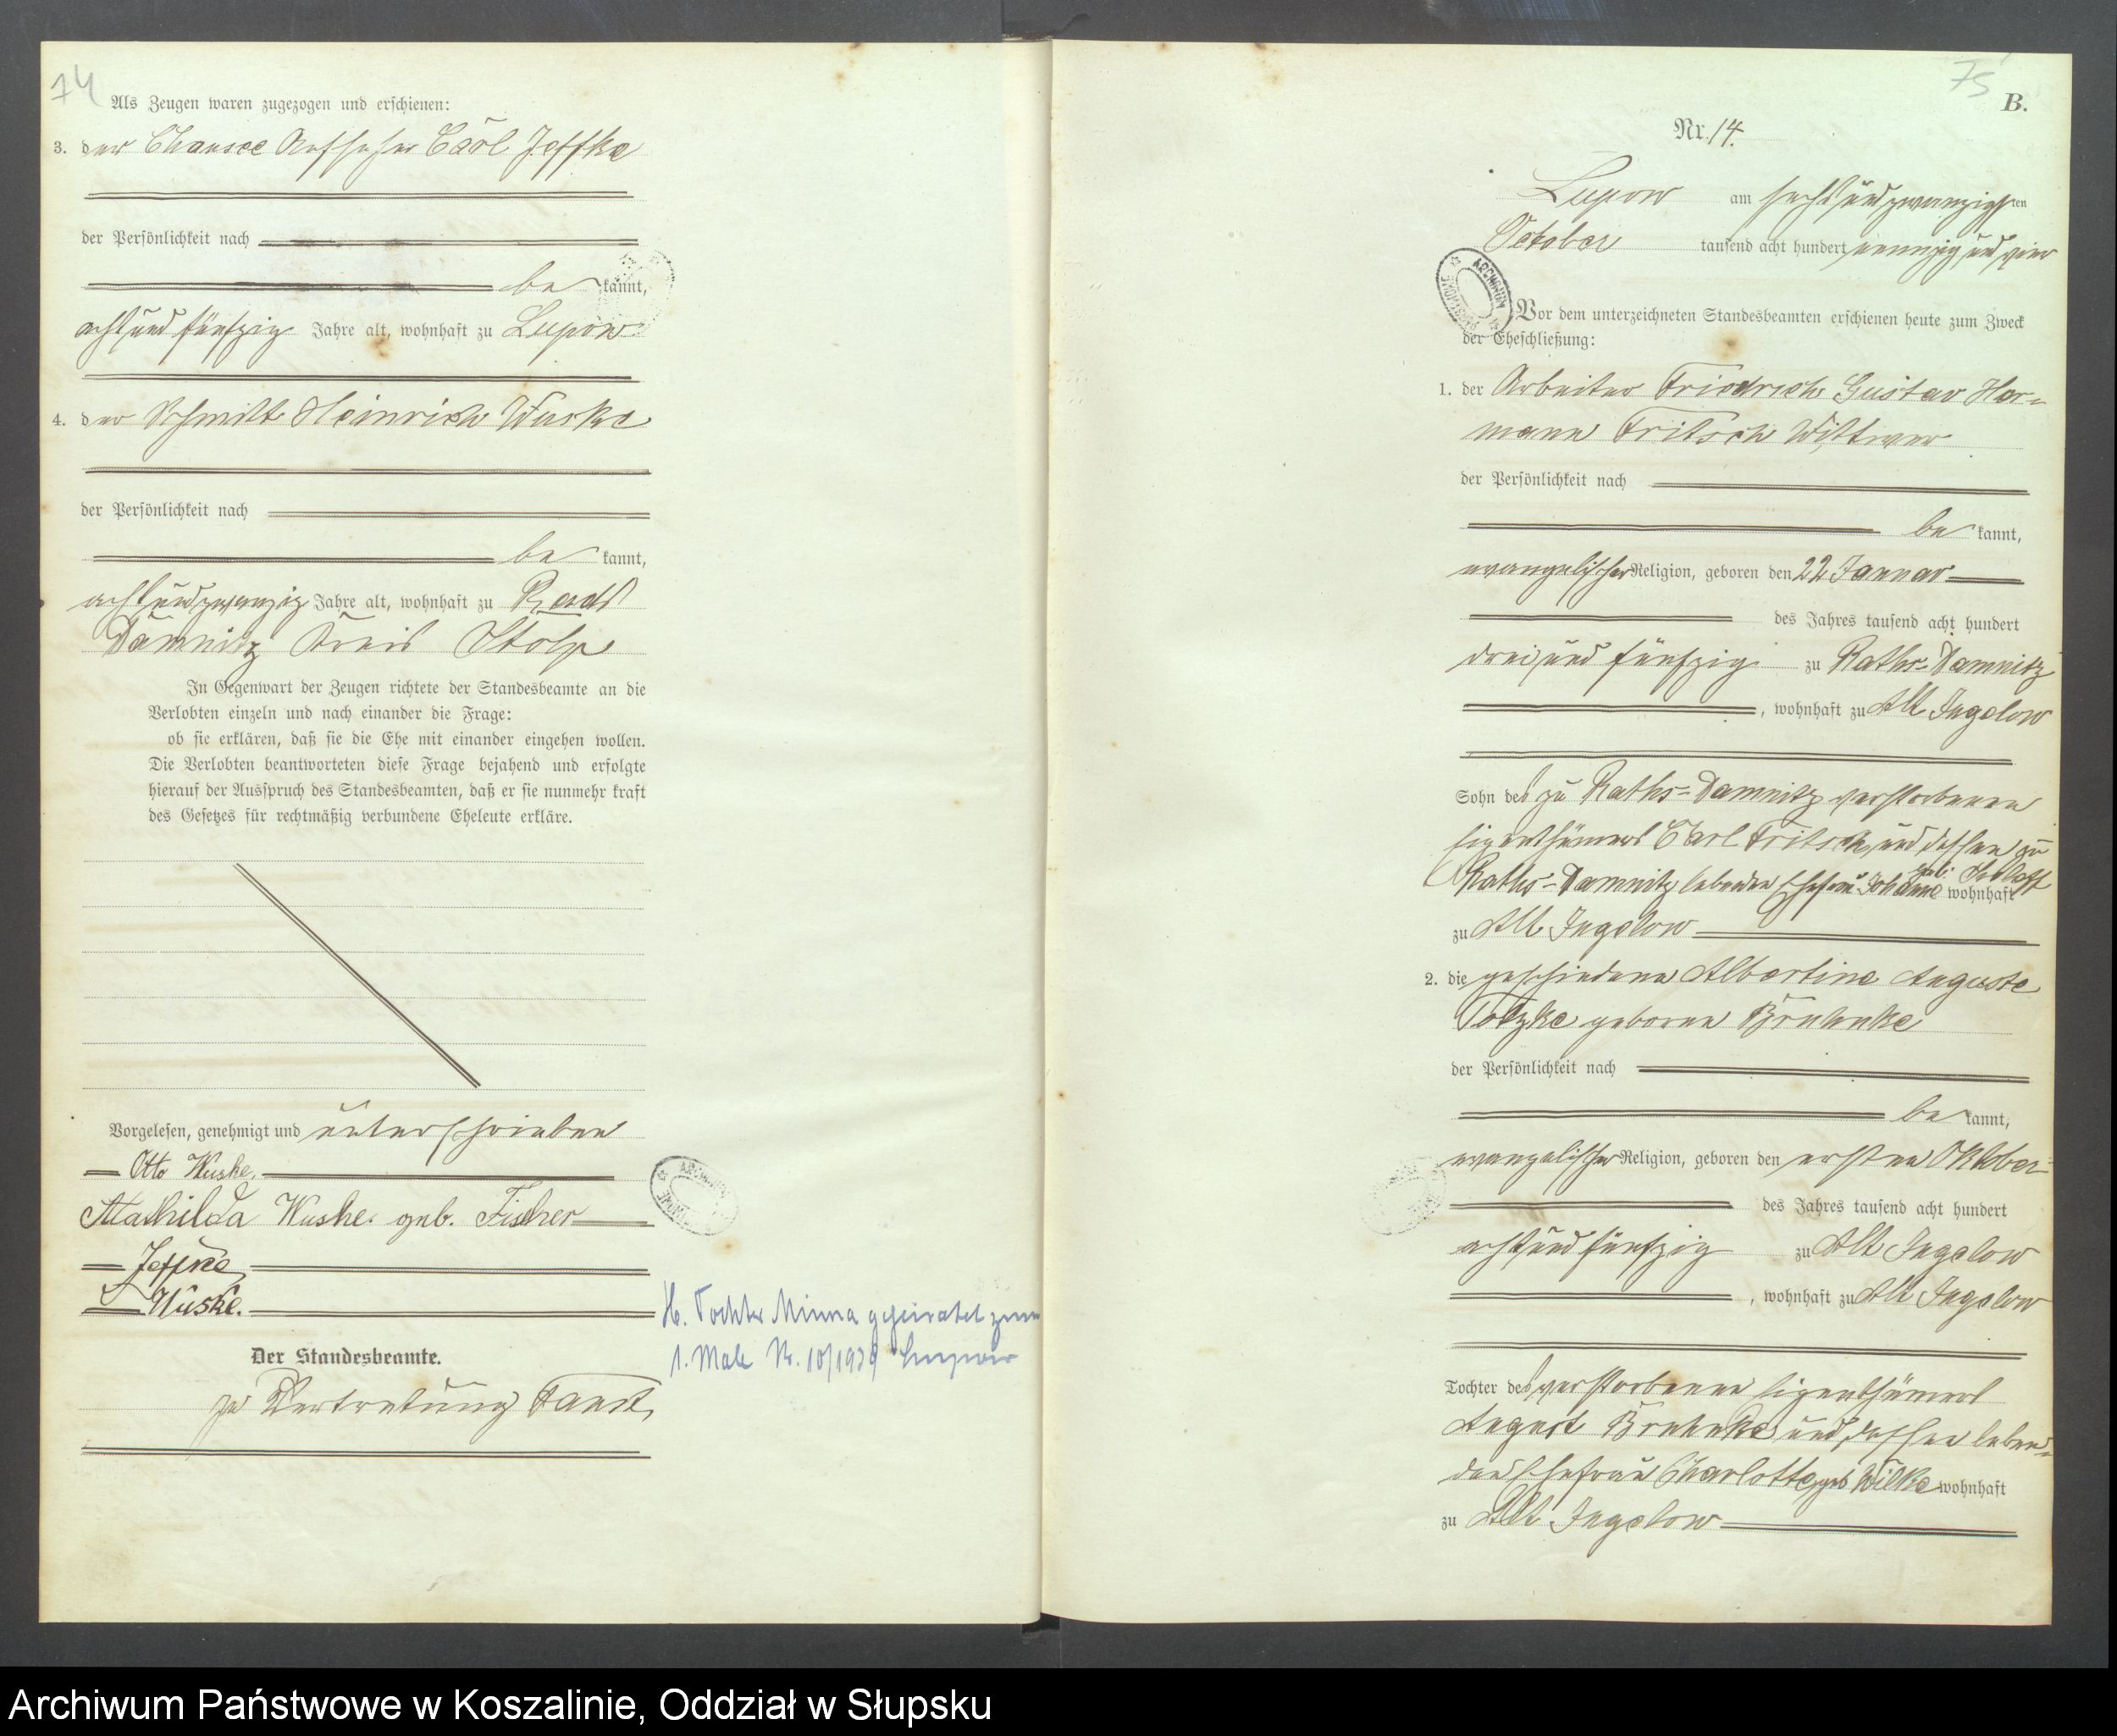 74
Als Zeugen waren zugezogen und erschienen:
3. der Chausee Aufseher Carl Jeffke
der Persönlichkeit nach
be kannt,
acht und fünfzig Jahre alt, wohnhaft zu Lupow
4. der Schmidt Heinrich Wuske
der Persönlichkeit nach
be kannt,
acht und zwanzig Jahre alt, wohnhaft zu Raths
Damnitz Kreis Stolp
In Gegenwart der Zeugen richtete der Standesbeamte an die
Verlobten einzeln und nach einander die Frage:
ob sie erklären, daß sie die Ehe mit einander eingehen wollen.
Die Verlobten beantworteten diese Frage bejahend und erfolgte
hierauf der Ausspruch des Standesbeamten, daß er sie nunmehr kraft
des Gesetzes für rechtmäßig verbundene Eheleute erkläre.
Vorgelesen, genehmigt und unterschrieben
Otto Wuske.
Mathilda Wuske. geb. Fischer
Jeffke
Wuske.
H. Tochter Minna geheiratet zum
1. Male Nr. 10/1939 Lupow
Der Standesbeamte.
In Vertretung
75
B.
Nr. 14.
Lupow am sechs und zwanzigsten
October tausend acht hundert neunzig und vier
Vor dem unterzeichneten Standesbeamten erschienen heute zum Zweck
der Eheschließung:
1. der Arbeiter Friedrich Gustav Her-
mann Fritsch Wittwer
der Persönlichkeit nach
be kannt,
evangelischer Religion, geboren den 22 Januar
des Jahres tausend acht hundert
drei und fünfzig zu Raths-Damnitz
, wohnhaft zu Alt Jugelow
Sohn des zu Raths-Damnitz verstorbenen
Eigenthümers Carl Fritsch und dessen zu
Raths-Damnitz lebenden Ehefrau Johanne geb. wohnhaft
zu Alt Jugelow
2. die geschiedene Albertine Auguste
Totzke geborene Bruhnke
der Persönlichkeit nach
be kannt,
evangelischer Religion, geboren den ersten Oktober
des Jahres tausend acht hundert
acht und fünfzig zu Alt Jugelow
, wohnhaft zu Alt Jugelow
Tochter des verstorbenen Eigenthümers
August Bruhnke und dessen leben-
den Ehefrau Charlotte geb Wilke wohnhaft
zu Alt Jugelow
Archiwum Państwowe w Koszalinie, Oddział w Słupsku